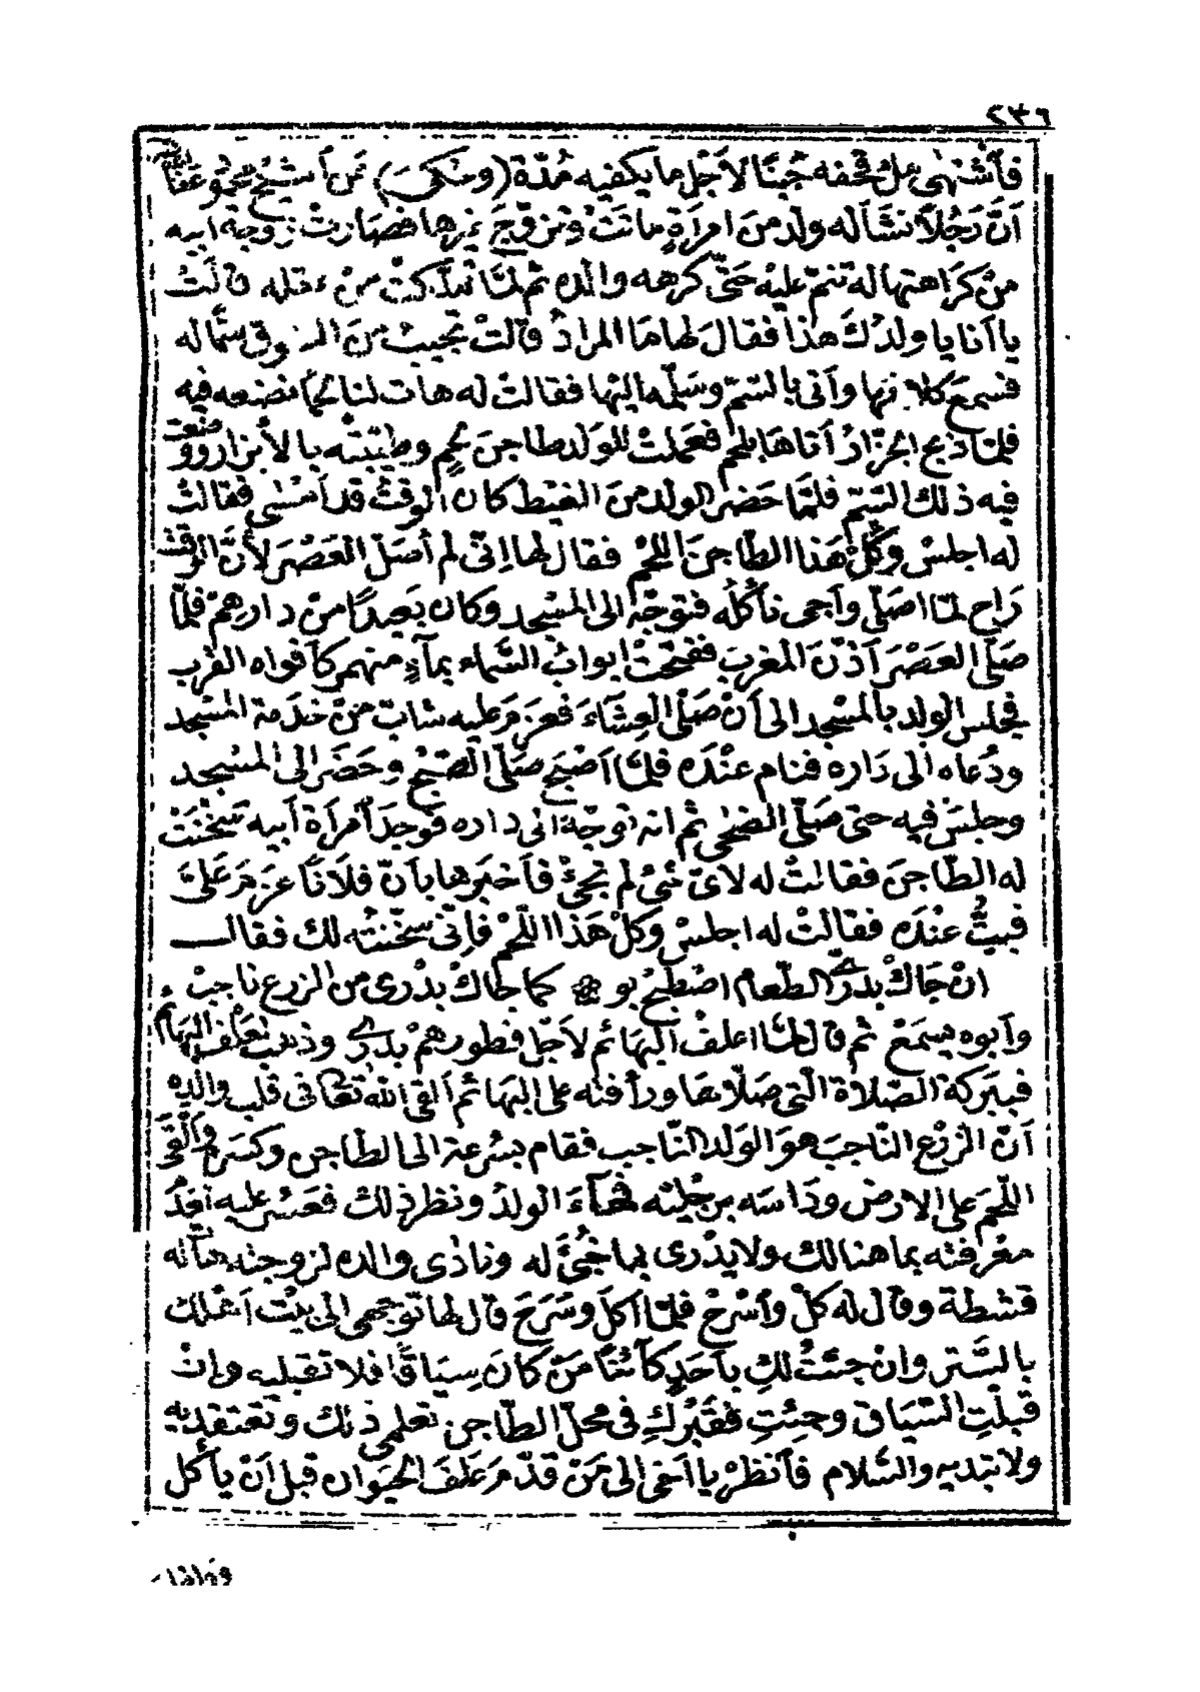 ٢٣٦
فَٱشْتَهٰى ملء قحفه جُبْنًا لأَجْل ما يكفيه مُدّة (وحكى) عَن أشيخ عفا الله
أنَّ رَجُلاً نشَأَ له ولد من امرأةٍ ماتَتْ وتزوّجَ غيرها فصَارت زوجة ابيه
مِنْ كَرَاهتها له تنمّ عليْه حَتّى كرهه والده ثم لمّا تمكّنتْ منْ قتله قالَتْ
يا أنا يا ولدُكَ هٰذا فقالَ لها مَا المرادُ قالَتْ تجيبُ منَ السّوق سمًّا له
فسمعَ كلامها وأتى بالسّمّ وسَلّمه اليها فقالتْ له هات لنا لحمًا نصنعه فيه
فلمّا ذبح الجزّارُ أتاها بلحم فعَملتْ للوَلد طاجن لَحمٍ وطيّبتْه بالأبزار ووضعت
فيه ذلك السّمّ فلمَّا حَضر الولد منَ الغيْط كان الوقتُ قد أمْسٰى فقالتْ
له اجلسْ وكُلْ هَذا الطّاجنَ اللّحم فقال لها إنّى لم أصَلّ العَصْرَ لأنَّ الوقتْ
رَاح لمّا اصَلّى وأجى نأكُلُه فتوجّه الى المسْجد وكان بَعيدًا منْ دارهمْ فلمّا
صَلّى العَصْرَ أذّنَ المغربَ ففُتحَتْ ابوابُ السَّماء بمآءٍ منهمرٍ كأفواه القرب
فجلسَ الولد بالمسْجد الى أنْ صَلّى العِشَآءَ فعَزمَ عليه شابّ منْ خدمة المسْجد
ودُعاه الى دَاره فنام عنْدَه فلمّا اَصْبَحَ صَلّى الصّبْحَ وحَضرَ الى المسْجد
وجلسَ فيه حتى صَلّى الضحٰى ثم انه توجّه الى داره فوَجدَ أمرأة أبيه سَخّنَتْ
له الطّاجنَ فقالتْ له لاىّ شئ لم تجئْ فأخبرها بأنّ فلاَنًا عزمَ عَلىَّ
فبِتُّ عنْدَه فقالتْ له اجلسْ وكلْ هَذا اللّحمْ فإنّى سخّنْتُه لك فقالـــ
انْ جَاكْ بدرى الطّعام اصْطبحْ بو ۞ كما جَاكْ بدْرى من الزرع ناجبْ
وأبوه يسمَعْ ثم قال لمّا اعلفْ البهائم لأجل فطورهمْ بدرى وذهبَ لعلف البهائم
فببَركة الصّلاة الّتى صَلّاها ورأفته على البهائم ألقى الله تعالى فى قلب والده
أنّ الزرْعَ النّاجبَ هوَ الوَلد النّاجب فقام بسُرعة الى الطّاجن وكسَره وألْقَى
اللّحمَ على الارض ودَاسَه برجْليْه فجآءَ الولدُ ونظر ذلك فعَسُر عليه لعدم
معرفته بما هنالك ولا يدْرى بما خُبّئَ له ونادٰى والده لزوجته هاته
قشطة وقال له كلْ وأسْرحْ فلمّا أكلَ وسَرَحَ قال لها توجّهى الى بيْت أهلك
بالسَّتر وانْ جئْتُ لكِ بأحَدٍ كآئنًا مَنْ كانَ سيَاقًا فلا تقبليه وإنْ
قبلْتِ السّيَاق وجئتِ فقَبْرُكِ فى محلّ الطّاجن تعلمى ذلك وتعتقديه
ولا تبديه والسَّلام فٱنظرْ يا أخى الى مَنْ قدّمَ عَلفَ الحيَوان قبل أنْ يأكل